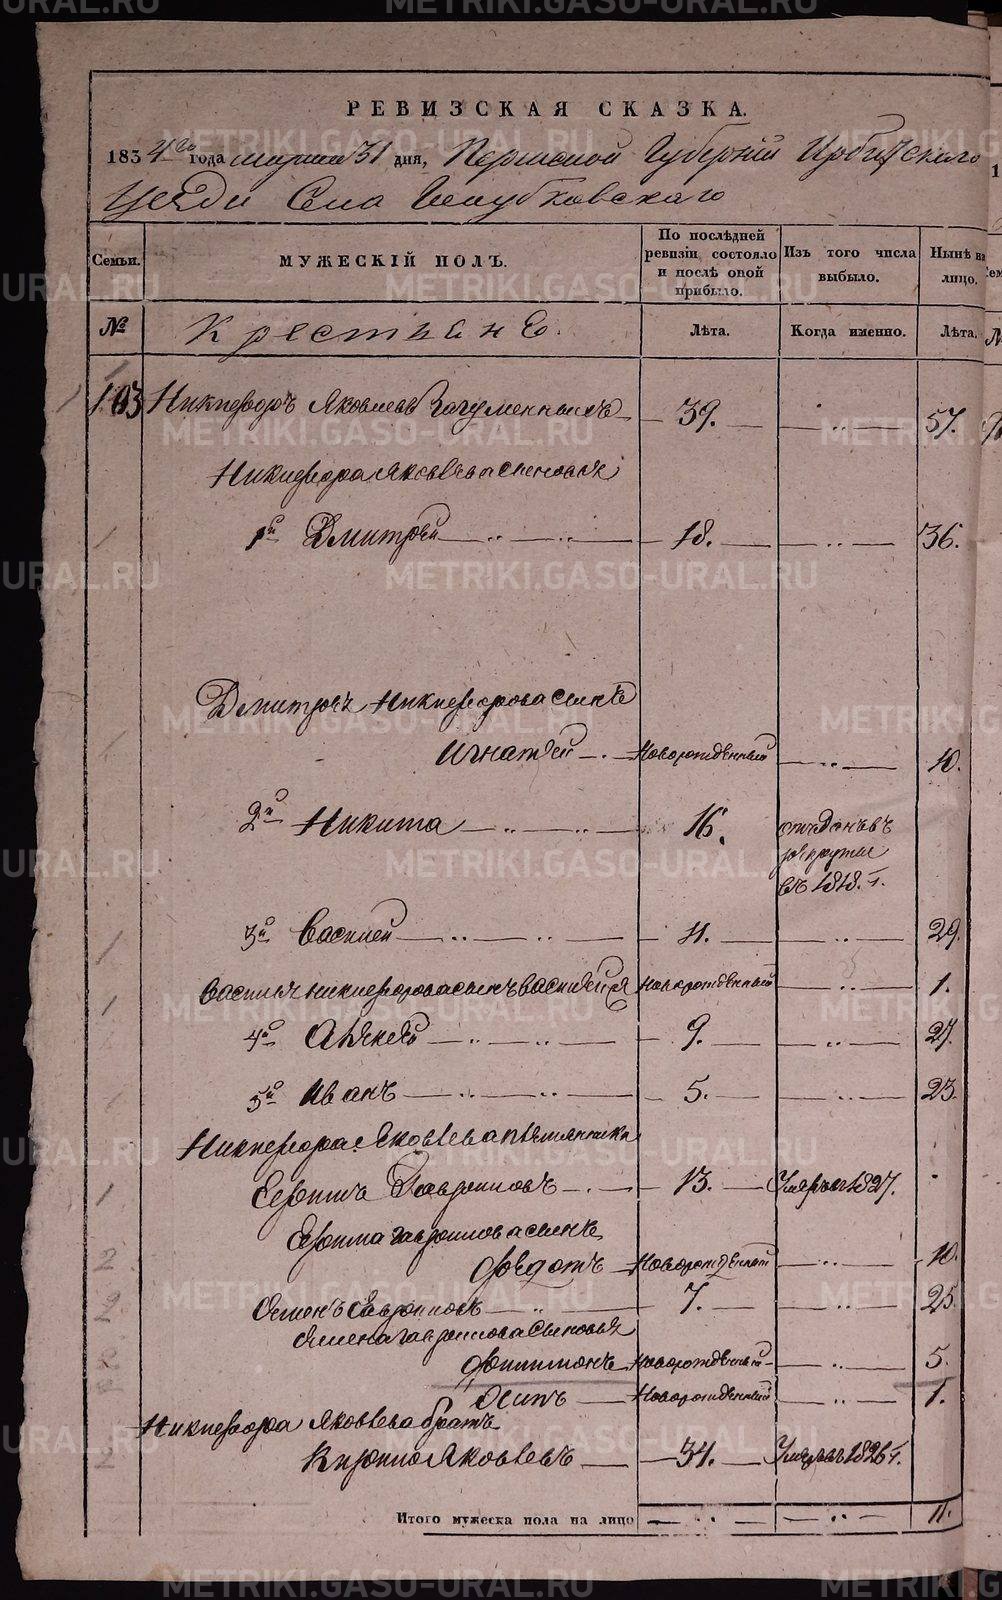 РЕВИЗСКАЯ СКАЗКА.
1834го года марта 31 дня, Пермской Губернии Ирбитскаго
Уезда Села Голубковскаго
Семьи.
МУЖЕСКІЙ ПОЛЪ.
По послѣдней ревизіи состояло и послѣ оной прибыло.
Изъ того числа выбыло.
Нынѣ на лицо.
№
Крестьянѣ.
Лѣта.
Когда именно.
Лѣта.
103 Никифоръ Яковлевъ Загуменныхъ 39. 57.
Никифора Яковлева сыновья
1й Дмитрей 18. 36.
Дмитрея Никифорова сынъ
Игнатей Новорожденный 10.
2й Никита 16. отданъ въ
рекруты
въ 1818. г.
3й Василей 11. 29.
Василья Никифорова сынъ Новорожденный 1.
4й 9. 27.
5й Иванъ 5. 23.
Никифора Яковлева племянники
Ефимъ Гавриловъ 13. Умеръ 1827.
Ефима Гаврилова сынъ
Федотъ Новорожденный 10.
Семенъ Гавриловъ 7. 25.
Семена Гаврилова сыновья
Филимонъ Новорожденный 5.
Осипъ Новорожденный 1.
Никифора Яковлева братъ
Кирило Яковлевъ 34. Умеръ 1826 г.
Итого мужеска пола на лицо 11.
METRIKI.GASO-URAL.RU